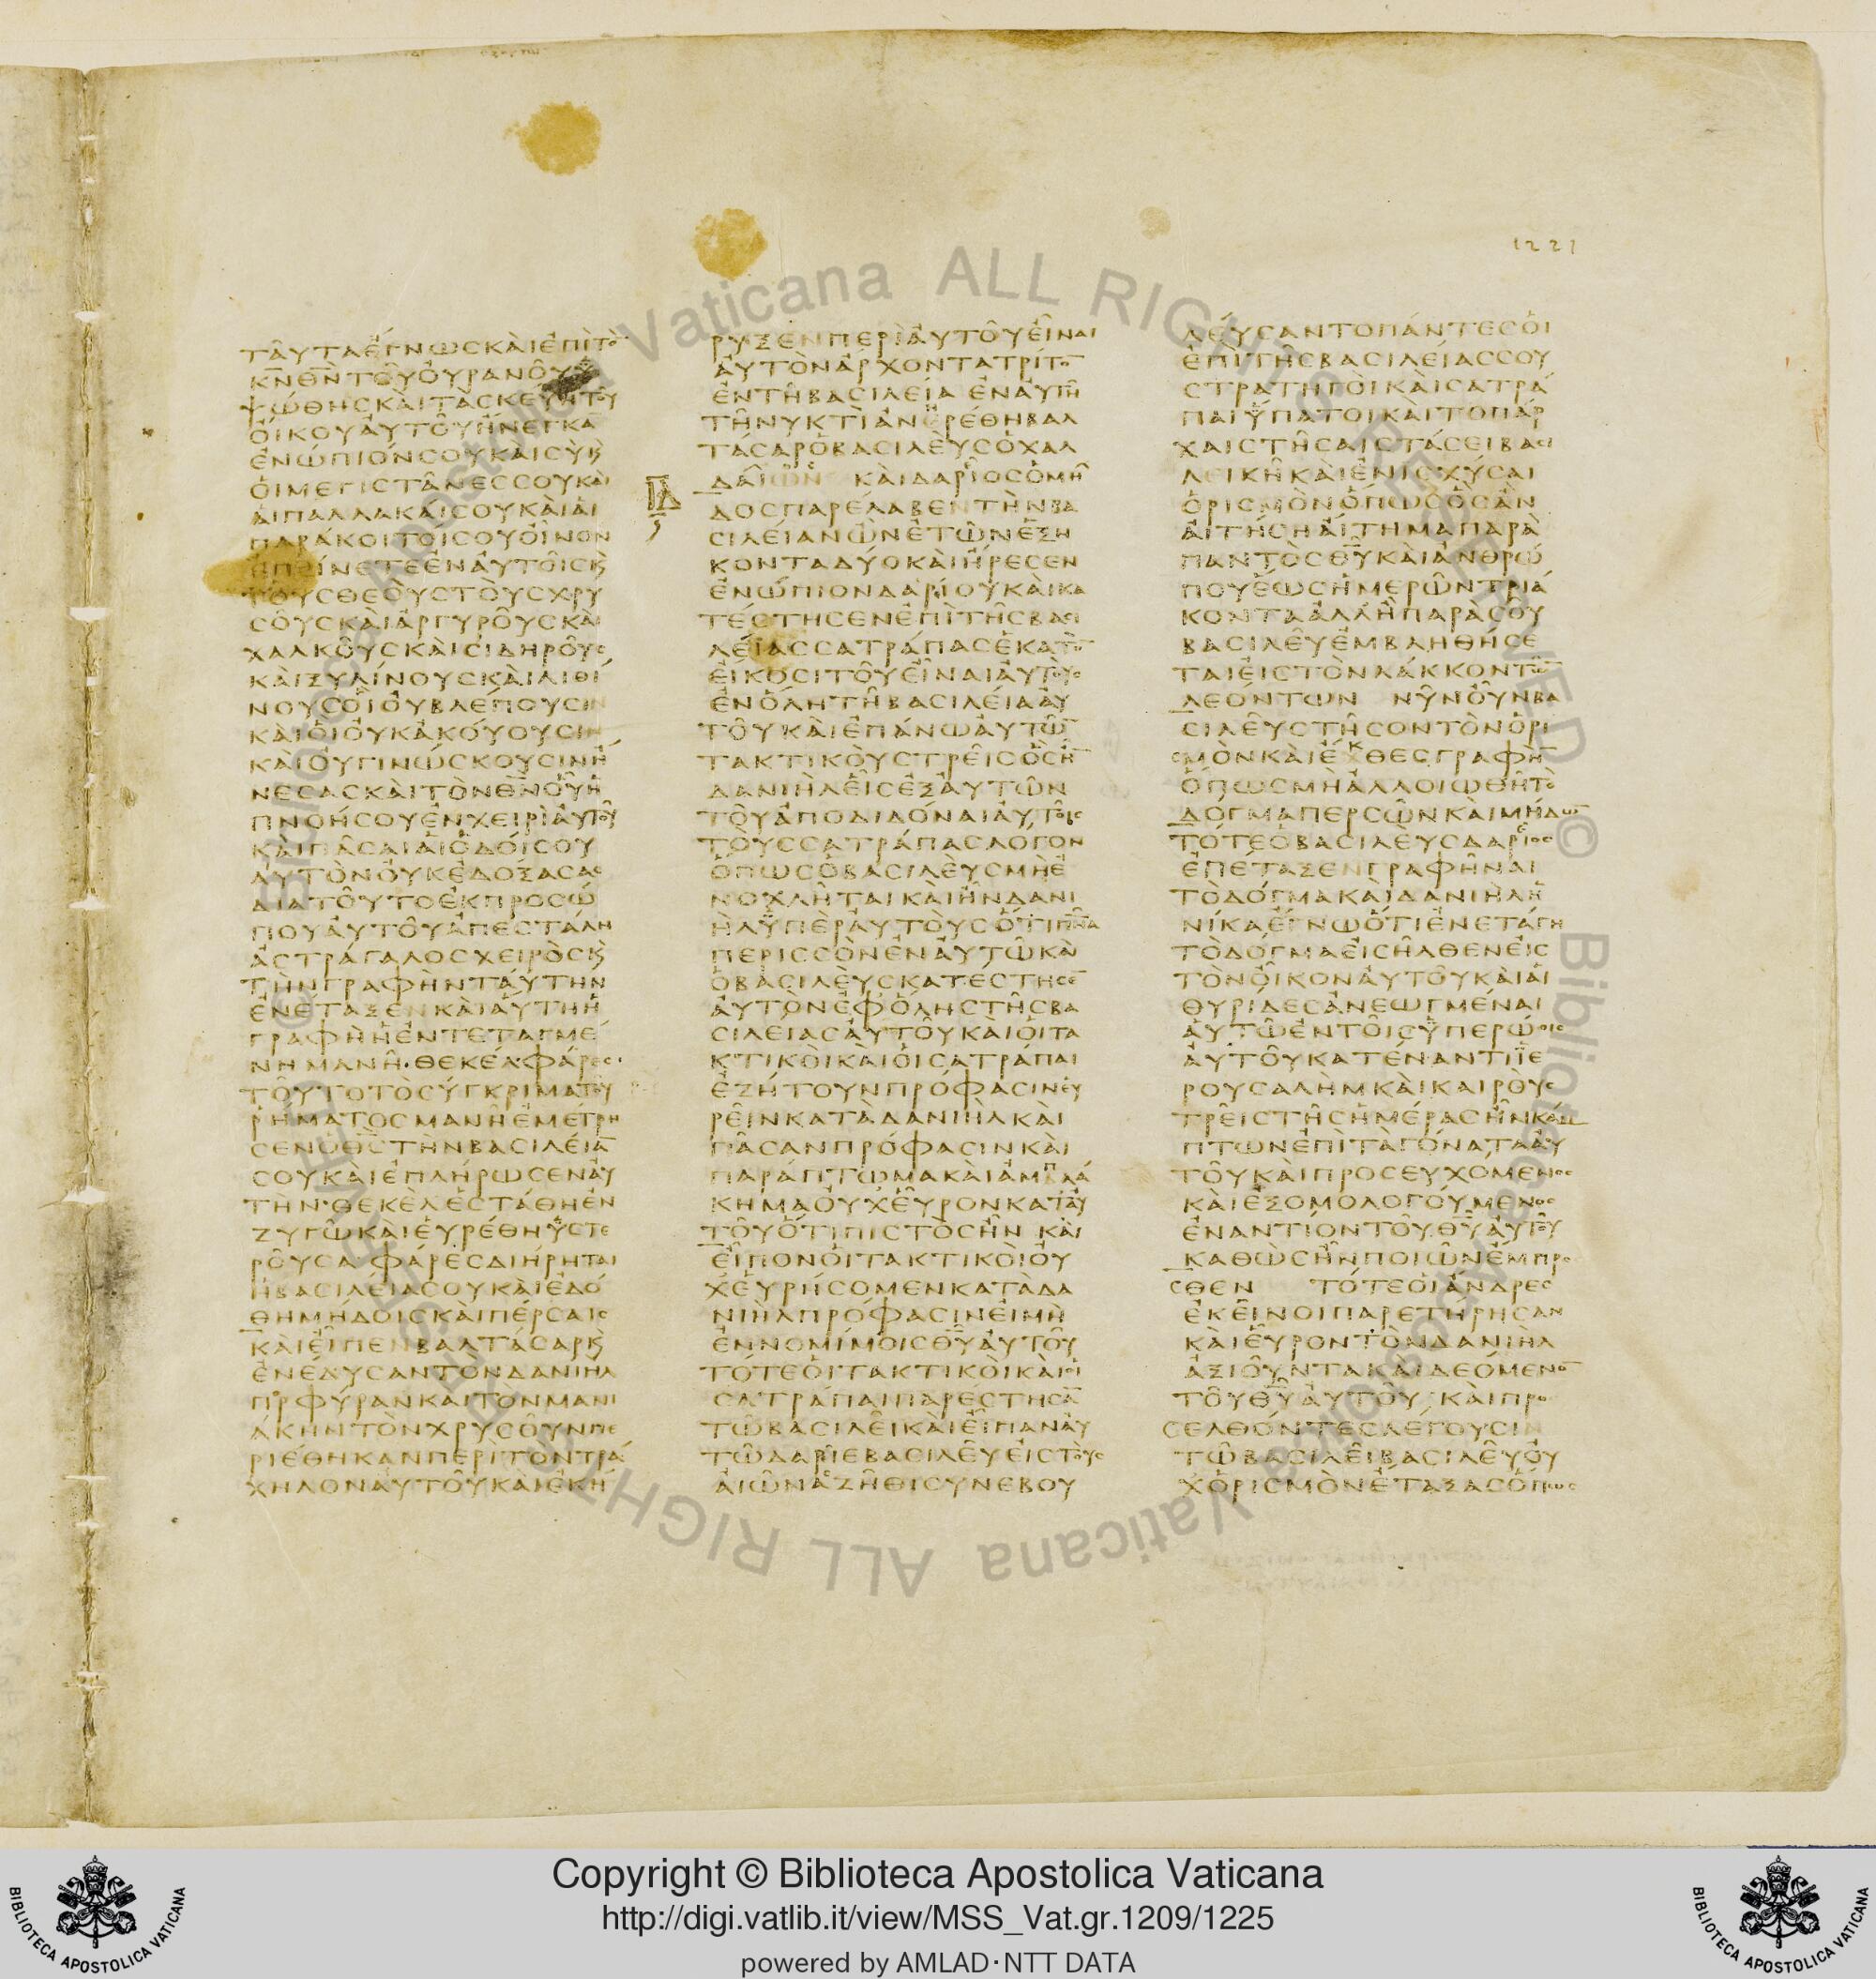 1221
ΤΑΥΤΑΕΓΝΩΣΚΑΙΕΠΙΤΟ
ΚΝΘΝΤΟΥΟΥΡΑΝΟΥΥ
ΨΩΘΗΣΚΑΙΤΑΣΚΕΥΗΤΟΥ
ΟΙΚΟΥΑΥΤΟΥΗΝΕΓΚΑ
ΕΝΩΠΙΟΝΣΟΥΚΑΙΣΥΚ
ΟΙΜΕΓΙΣΤΑΝΕΣΣΟΥΚΑΙ
ΑΙΠΑΛΛΑΚΑΙΣΟΥΚΑΙΑΙ
ΠΑΡΑΚΟΙΤΟΙΣΟΥΟΙΝΟΝ
ΕΠΕΙΝΕΤΕΕΝΑΥΤΟΙΣΚ
ΤΟΥΣΘΕΟΥΣΤΟΥΣΧΡΥ
ΣΟΥΣΚΑΙΑΡΓΥΡΟΥΣΚΑΙ
ΧΑΛΚΟΥΣΚΑΙΣΙΔΗΡΟΥΣ
ΚΑΙΞΥΛΙΝΟΥΣΚΑΙΛΙΘΙ
ΝΟΥΣΟΙΟΥΒΛΕΠΟΥΣΙΝ
ΚΑΙΟΙΟΥΚΑΚΟΥΟΥΣΙΝ
ΚΑΙΟΥΓΙΝΩΣΚΟΥΣΙΝΗ
ΝΕΣΑΣΚΑΙΤΟΝΘΝΟΥΗ
ΠΝΟΗΣΟΥΕΝΧΕΙΡΙΑΥΤΟΥ
ΚΑΙΠΑΣΑΙΑΙΟΔΟΙΣΟΥ
ΑΥΤΟΝΟΥΚΕΔΟΞΑΣΑΣ
ΔΙΑΤΟΥΤΟΕΚΠΡΟΣΩ
ΠΟΥΑΥΤΟΥΑΠΕΣΤΑΛΗ
ΑΣΤΡΑΓΑΛΟΣΧΕΙΡΟΣΚ
ΤΗΝΓΡΑΦΗΝΤΑΥΤΗΝ
ΕΝΕΤΑΞΕΝΚΑΙΑΥΤΗΗ
ΓΡΑΦΗΗΕΝΤΕΤΑΓΜΕ
ΝΗΜΑΝΗ·ΘΕΚΕΛ·ΦΑΡΕΣ·
ΤΟΥΤΟΤΟΣΥΓΚΡΙΜΑΤΟΥ
ΡΗΜΑΤΟΣΜΑΝΗΕΜΕΤΡΗ
ΣΕΝΟΘΣΤΗΝΒΑΣΙΛΕΙΑ
ΣΟΥΚΑΙΕΠΛΗΡΩΣΕΝΑΥ
ΤΗΝ·ΘΕΚΕΛΕΣΤΑΘΗΕΝ
ΖΥΓΩΚΑΙΕΥΡΕΘΗΥΣΤΕ
ΡΟΥΣΑ·ΦΑΡΕΣΔΙΗΡΗΤΑΙ
ΗΒΑΣΙΛΕΙΑΣΟΥΚΑΙΕΔΟ
ΘΗΜΗΔΟΙΣΚΑΙΠΕΡΣΑΙΣ
ΚΑΙΕΙΠΕΝΒΑΛΤΑΣΑΡΚ
ΕΝΕΔΥΣΑΝΤΟΝΔΑΝΙΗΛ
ΠΡΦΥΡΑΝΚΑΙΤΟΝΜΑΝΙ
ΑΚΗΝΤΟΝΧΡΥΣΟΥΝΠΕ
ΡΙΕΘΗΚΑΝΠΕΡΙΤΟΝΤΡΑ
ΧΗΛΟΝΑΥΤΟΥΚΑΙΕΚΗ
ΡΥΞΕΝΠΕΡΙΑΥΤΟΥΕΙΝΑΙ
ΑΥΤΟΝΑΡΧΟΝΤΑΤΡΙΤΟ
ΕΝΤΗΒΑΣΙΛΕΙΑ ΕΝΑΥΤΗ
ΤΗΝΥΚΤΙΑΝΗΡΕΘΗΒΑΛ
ΤΑΣΑΡΟΒΑΣΙΛΕΥΣΟΧΑΛ
ΔΑΙΩΝ ΚΑΙΔΑΡΙΟΣΟΜΗ
ΔΟΣΠΑΡΕΛΑΒΕΝΤΗΝΒΑ
ΣΙΛΕΙΑΝΩΝΕΤΩΝΕΞΗ
ΚΟΝΤΑΔΥΟΚΑΙΗΡΕΣΕΝ
ΕΝΩΠΙΟΝΔΑΡΙΟΥΚΑΙΚΑ
ΤΕΣΤΗΣΕΝΕΠΙΤΗΣΒΑΣΙ
ΛΕΙΑΣΣΑΤΡΑΠΑΣΕΚΑΤΟ
ΕΙΚΟΣΙΤΟΥΕΙΝΑΙΑΥΤΟΥΣ
ΕΝΟΛΗΤΗΒΑΣΙΛΕΙΑΑΥ
ΤΟΥΚΑΙΕΠΑΝΩΑΥΤΩ
ΤΑΚΤΙΚΟΥΣΤΡΕΙΣΟΣΗ
ΔΑΝΙΗΛΕΙΣΕΞΑΥΤΩΝ
ΤΟΥΑΠΟΔΙΔΟΝΑΙΑΥΤΟΙΣ
ΤΟΥΣΣΑΤΡΑΠΑΣΛΟΓΟΝ
ΟΠΩΣΟΒΑΣΙΛΕΥΣΜΗΕ
ΝΟΧΛΗΤΑΙΚΑΙΗΝΔΑΝΙ
ΗΛΥΠΕΡΑΥΤΟΥΣΟΤΙΠΝΑ
ΠΕΡΙΣΣΟΝΕΝΑΥΤΩΚΑΙ
ΟΒΑΣΙΛΕΥΣΚΑΤΕΣΤΗΣΕ
ΑΥΤΟΝΕΦΟΛΗΣΤΗΣΒΑ
ΣΙΛΕΙΑΣΑΥΤΟΥΚΑΙΟΙΤΑ
ΚΤΙΚΟΙΚΑΙΟΙΣΑΤΡΑΠΑΙ
ΕΖΗΤΟΥΝΠΡΟΦΑΣΙΝΕΥ
ΡΕΙΝΚΑΤΑΔΑΝΙΗΛΚΑΙ
ΠΑΣΑΝΠΡΟΦΑΣΙΝΚΑΙ
ΠΑΡΑΠΤΩΜΑΚΑΙΑΜΠΛΑ
ΚΗΜΑΟΥΧΕΥΡΟΝΚΑΤΑΥ
ΤΟΥΟΤΙΠΙΣΤΟΣΗΝ ΚΑΙ
ΕΙΠΟΝΟΙΤΑΚΤΙΚΟΙΟΥ
ΧΕΥΡΗΣΟΜΕΝΚΑΤΑΔΑ
ΝΙΗΛΠΡΟΦΑΣΙΝΕΙΜΗ
ΕΝΝΟΜΙΜΟΙΣΘΥΑΥΤΟΥ
ΤΟΤΕΟΙΤΑΚΤΙΚΟΙΚΑΙΟΙ
ΣΑΤΡΑΠΑΙΠΑΡΕΣΤΗΣΑ
ΤΩΒΑΣΙΛΕΙΚΑΙΕΙΠΑΝΑΥ
ΤΩΔΑΡΙΕΒΑΣΙΛΕΥΕΙΣΤΟΥΣ
ΑΙΩΝΑΣΖΗΘΙΣΥΝΕΒΟΥ
ΛΕΥΣΑΝΤΟΠΑΝΤΕΣΟΙ
ΕΠΙΤΗΣΒΑΣΙΛΕΙΑΣΣΟΥ
ΣΤΡΑΤΗΓΟΙΚΑΙΣΑΤΡΑ
ΠΑΙΥΠΑΤΟΙΚΑΙΤΟΠΑΡ
ΧΑΙΣΤΗΣΑΙΣΤΑΣΕΙΒΑΣΙ
ΛΕΙΚΗΚΑΙΕΝΙΣΧΥΣΑΙ
ΟΡΙΣΜΟΝΟΠΩΣΟΣΑΝ
ΑΙΤΗΣΗΑΙΤΗΜΑΠΑΡΑ
ΠΑΝΤΟΣΘΥΚΑΙΑΝΘΡΩ
ΠΟΥΕΩΣΗΜΕΡΩΝΤΡΙΑ
ΚΟΝΤΑΑΛΛΗΠΑΡΑΣΟΥ
ΒΑΣΙΛΕΥΕΜΒΛΗΘΗΣΕ
ΤΑΙΕΙΣΤΟΝΛΑΚΚΟΝΤΩ
ΛΕΟΝΤΩΝ ΝΥΝΟΥΝΒΑ
ΣΙΛΕΥΣΤΗΣΟΝΤΟΝΟΡΙ
ΣΜΟΝΚΑΙΕΚΘΕΣΓΡΑΦΗ
ΟΠΩΣΜΗΑΛΛΟΙΩΘΗΤΟ
ΔΟΓΜΑΠΕΡΣΩΝΚΑΙΜΗΔΩ
ΤΟΤΕΟΒΑΣΙΛΕΥΣΔΑΡΙΟΣ
ΕΠΕΤΑΞΕΝΓΡΑΦΗΝΑΙ
ΤΟΔΟΓΜΑΚΑΙΔΑΝΙΗΛΗ
ΝΙΚΑΕΓΝΩΟΤΙΕΝΕΤΑΓΗ
ΤΟΔΟΓΜΑΕΙΣΗΛΘΕΝΕΙΣ
ΤΟΝΟΙΚΟΝΑΥΤΟΥΚΑΙΑΙ
ΘΥΡΙΔΕΣΑΝΕΩΓΜΕΝΑΙ
ΑΥΤΩΕΝΤΟΙΣΥΠΕΡΩΟΙΣ
ΑΥΤΟΥΚΑΤΕΝΑΝΤΙΙΕ
ΡΟΥΣΑΛΗΜΚΑΙΚΑΙΡΟΥΣ
ΤΡΕΙΣΤΗΣΗΜΕΡΑΣΗΝΚΑΜ
ΠΤΩΝΕΠΙΤΑΓΟΝΑΤΑΑΥ
ΤΟΥΚΑΙΠΡΟΣΕΥΧΟΜΕΝΟΣ
ΚΑΙΕΞΟΜΟΛΟΓΟΥΜΕΝΟΣ
ΕΝΑΝΤΙΟΝΤΟΥΘΥΑΥΤΟΥ
ΚΑΘΩΣΗΝΠΟΙΩΝΕΜΠΡΟ
ΣΘΕΝ ΤΟΤΕΟΙΑΝΔΡΕΣ
ΕΚΕΙΝΟΙΠΑΡΕΤΗΡΗΣΑΝ
ΚΑΙΕΥΡΟΝΤΟΝΔΑΝΙΗΛ
ΑΞΙΟΥΝΤΑΚΑΙΔΕΟΜΕΝΟ
ΤΟΥΘΥΑΥΤΟΥ ΚΑΙΠΡΟ
ΣΕΛΘΟΝΤΕΣΛΕΓΟΥΣΙΝ
ΤΩΒΑΣΙΛΕΙΒΑΣΙΛΕΥΟΥ
ΧΟΡΙΣΜΟΝΕΤΑΞΑΣΟΠΩΣ
Copyright © Biblioteca Apostolica Vaticana
http://digi.vatlib.it/view/MSS_Vat.gr.1209/1225
powered by AMLAD·NTT DATA
BIBLIOTECA APOSTOLICA VATICANA
BIBLIOTECA APOSTOLICA VATICANA